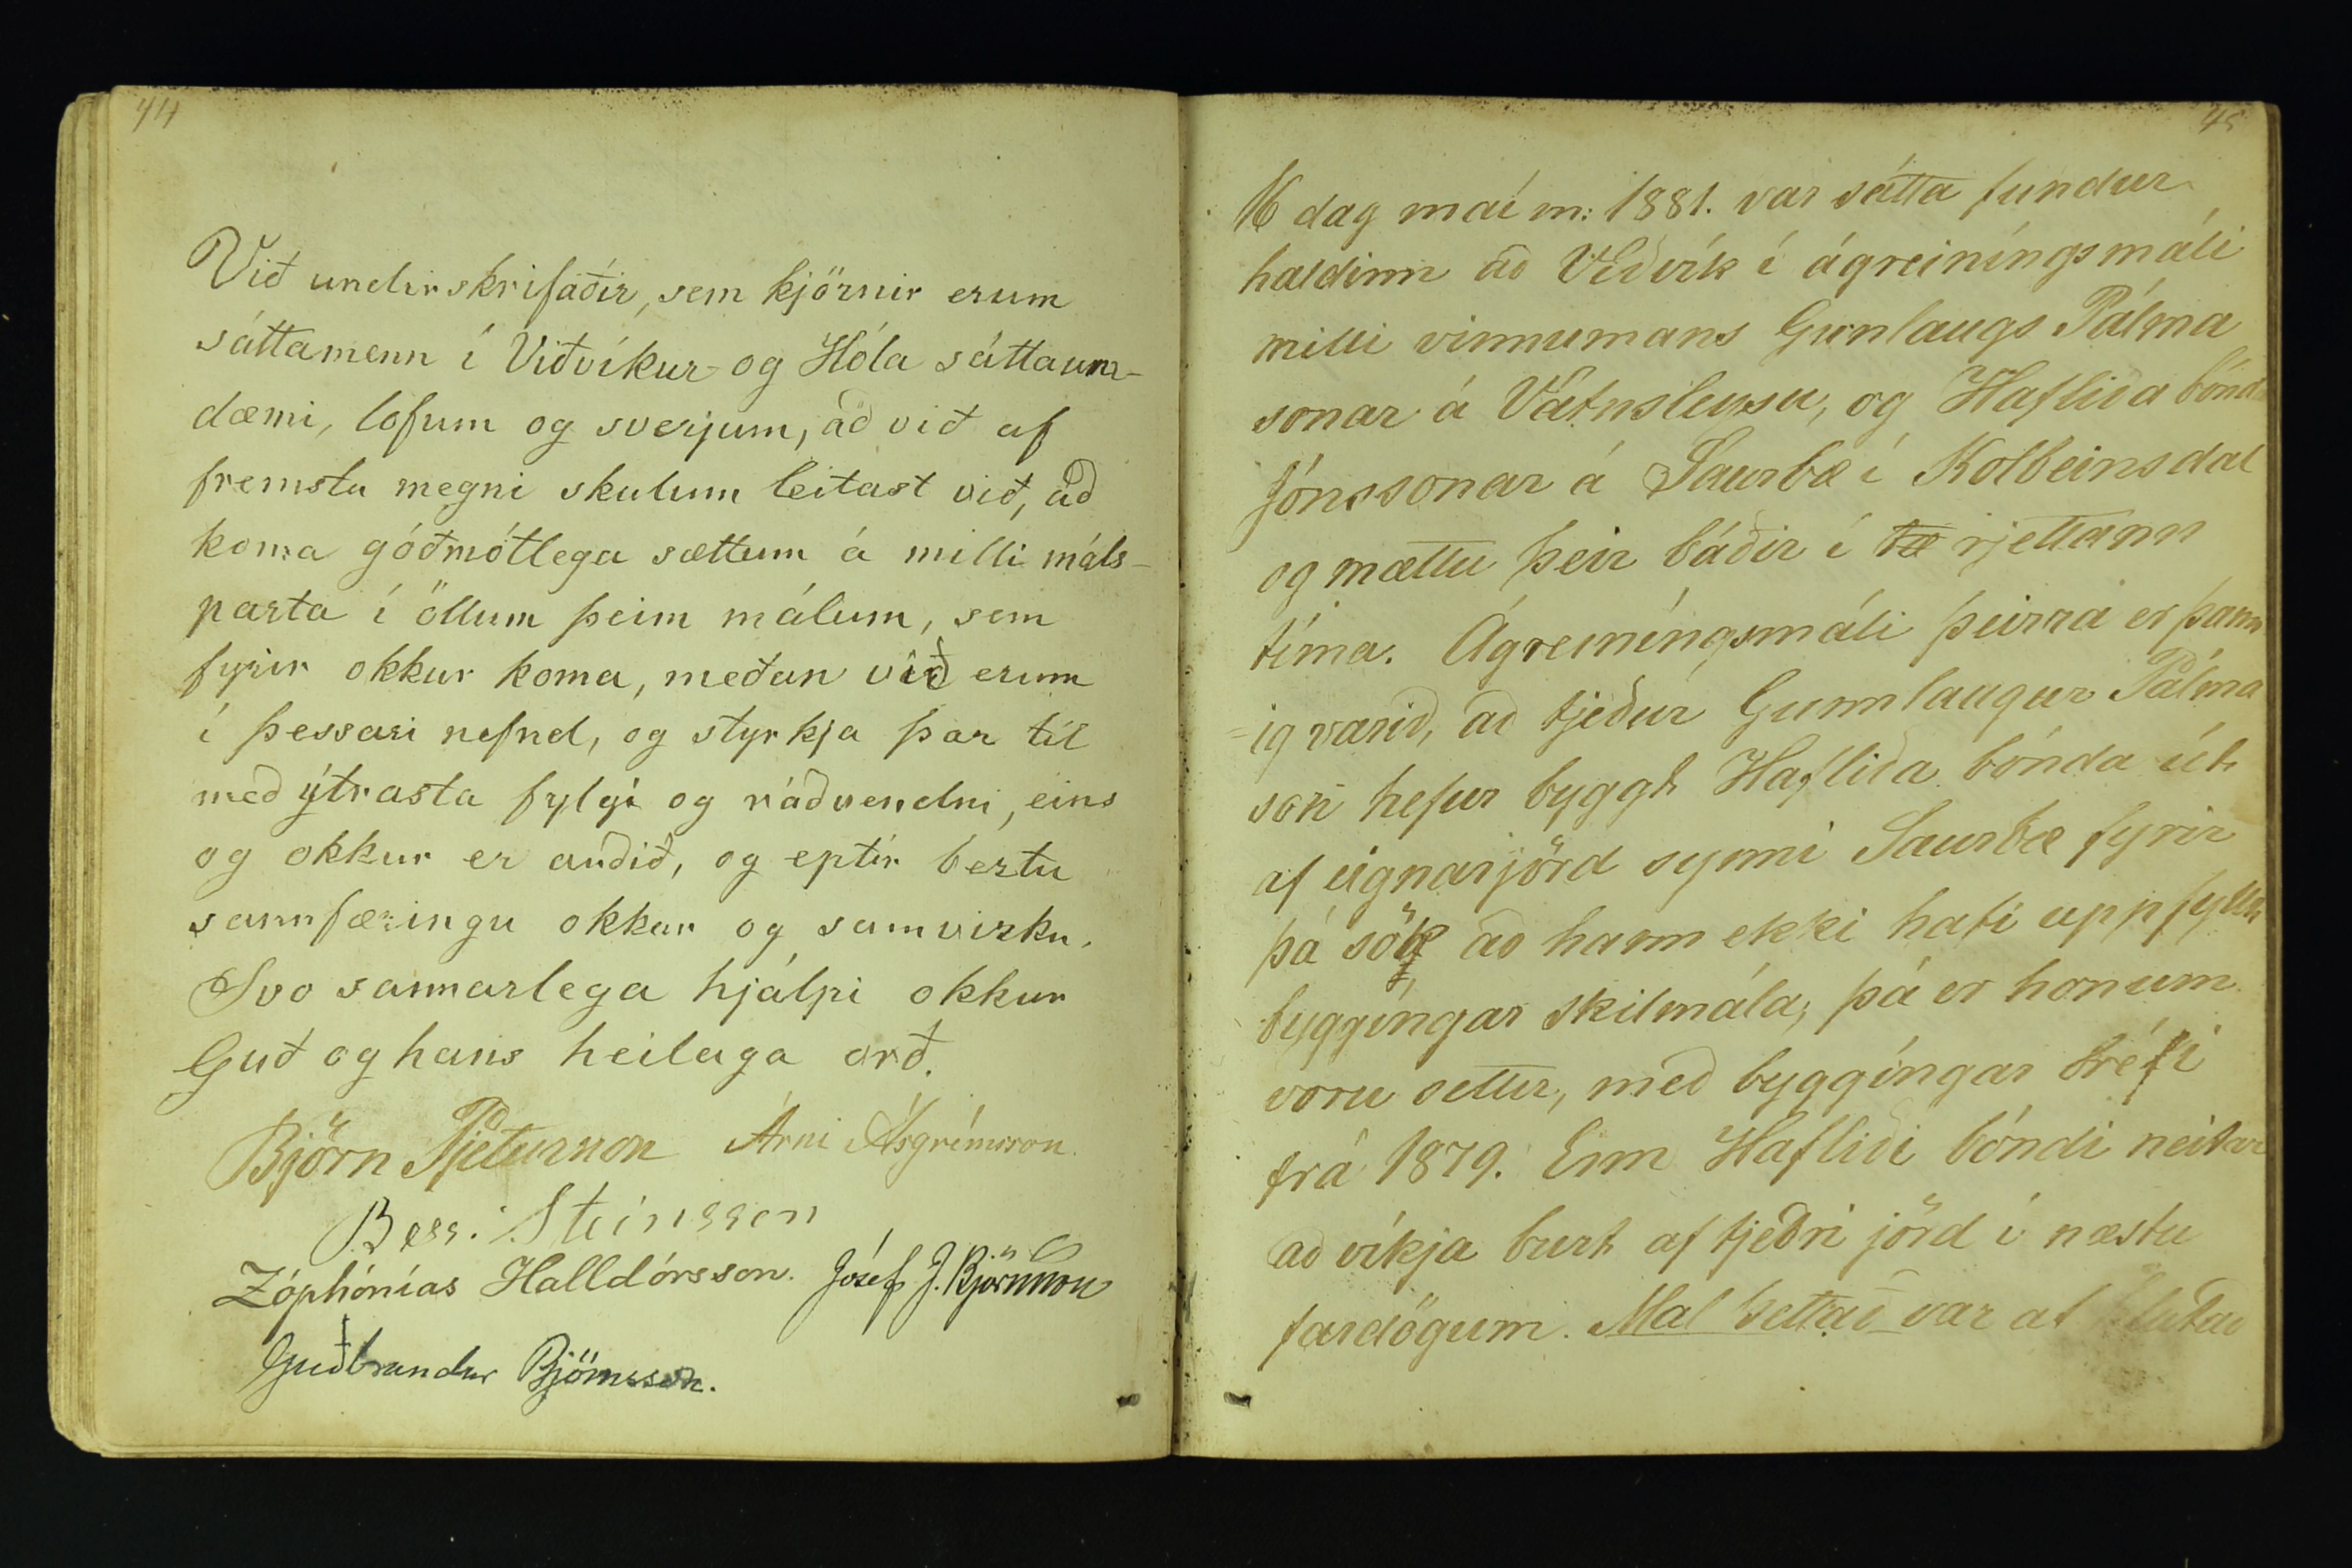 44
Við undirskrifaðir, sem kjörnir erum
sáttamenn í Viðvíkur og Hóla sáttaum-
dæmi, lofum og sverjum, að við af
fremsta megni skulum leitast við, að
koma góðmótlega sættum á milli máls-
parta í öllum þeim málum, sem
fyrir okkur koma, meðan við erum
í þessari nefnd, og styrkja þar til
með ýtrasta fylgi og ráðvendni, eins
og okkur er auðið, og eptir beztu
sannfæringu okkar og samvizku.
Svo sannarlega hjálpi okkur
Guð og hans heilaga orð.
Björn Pjetursson Árni Ásgrímsson.
Bessi Steinsson
Zóphónías Halldórsson. Jósef J. Björnsson
Guðbrandur Björnsson.
45
16 dag maí m: 1881. var sátta fundur
haldinn að Viðvík í ágreiníngsmáli
milli vinnumans Gunlaugs Pálma
sonar á Vatnsleysu, og Hafliða bónda
Jónssonar á Saurbæ í Kolbeinsdal
og mættu þeir báðir í tæ rjettann
tíma. Ágreiníngsmáli þeirra er þann
=ig varið, að tjeður Gunnlaugur Pálma
son hefur byggt Hafliða bónda út
af eignarjörd synni Saurbæ fyrir
þá sök að hann ekki hafi uppfyllt
byggíngar skilmála, þá er honum
voru settir, með byggíngar bréfi
frá 1879. Enn Hafliði bóndi neitar
að víkja burt af tjeðri jörd í næstu
fardögum. Mal þettað var af